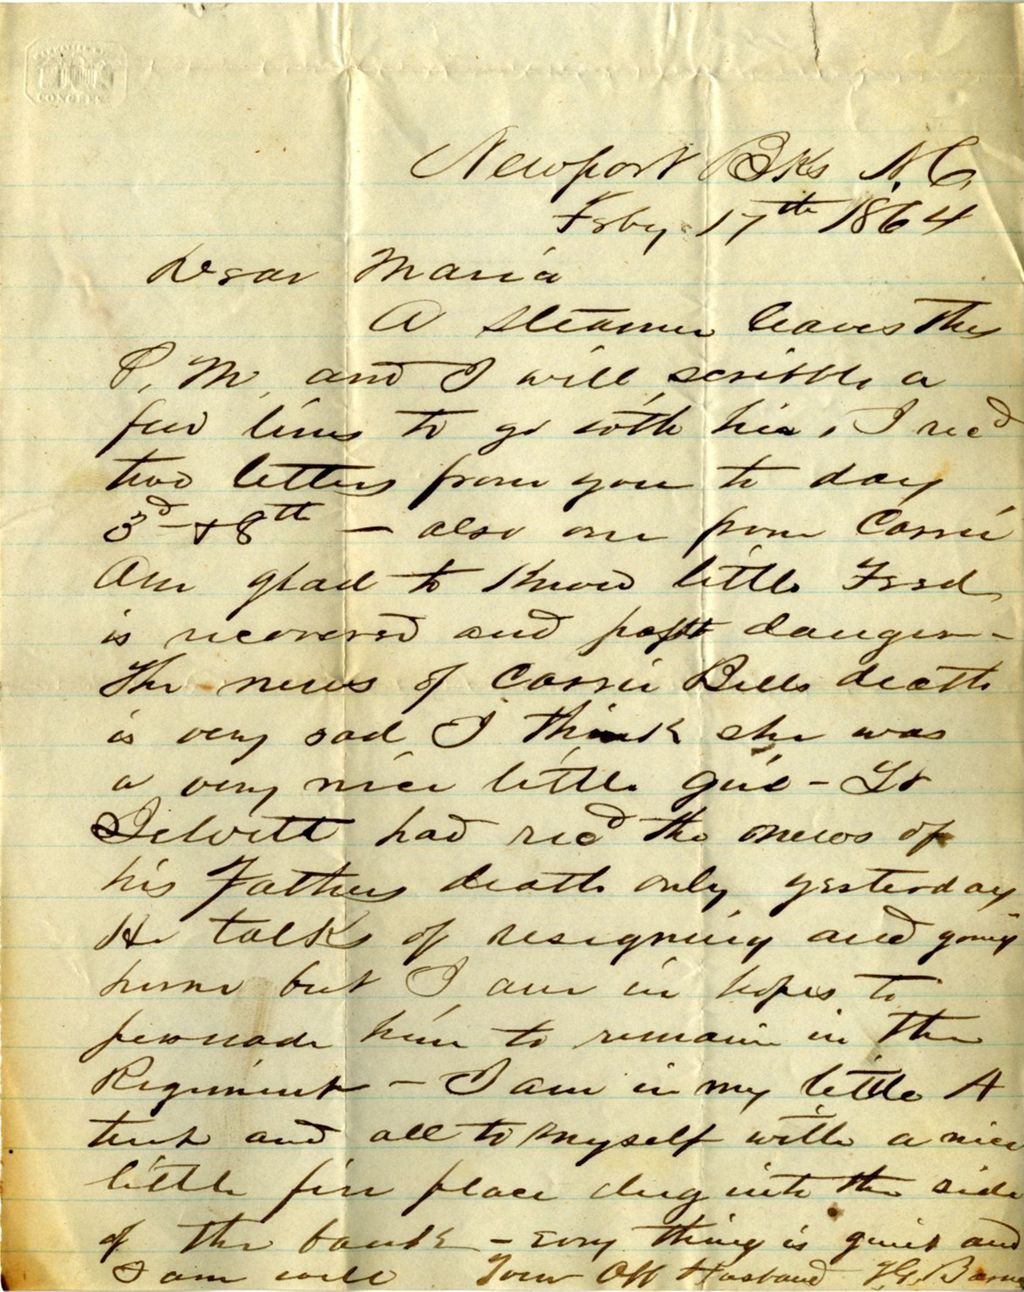 CONGRESS
Newport Bks N.C.
Feby 17th 1864
Dear Maria
A steamer leaves this
P. M. and I will scribble a
few lines to go with her, I recd
two letters from you to day
3d & 8th — also one from Carrie
Am glad to know little Fred
is recovered and past danger —
The news of Carrie Bells death
is very sad I think she was
a very nice little girl — Lt
DeWitt had recd the news of
his Fathers death only yesterday
He talks of resigning and going
home but I am in hopes to
persuade him to remain in the
Regiment — I am in my little A
tent and all to myself with a nice
little fire place dug into the side
of the bank — every thing is quiet and
I am well Your Aff Husband